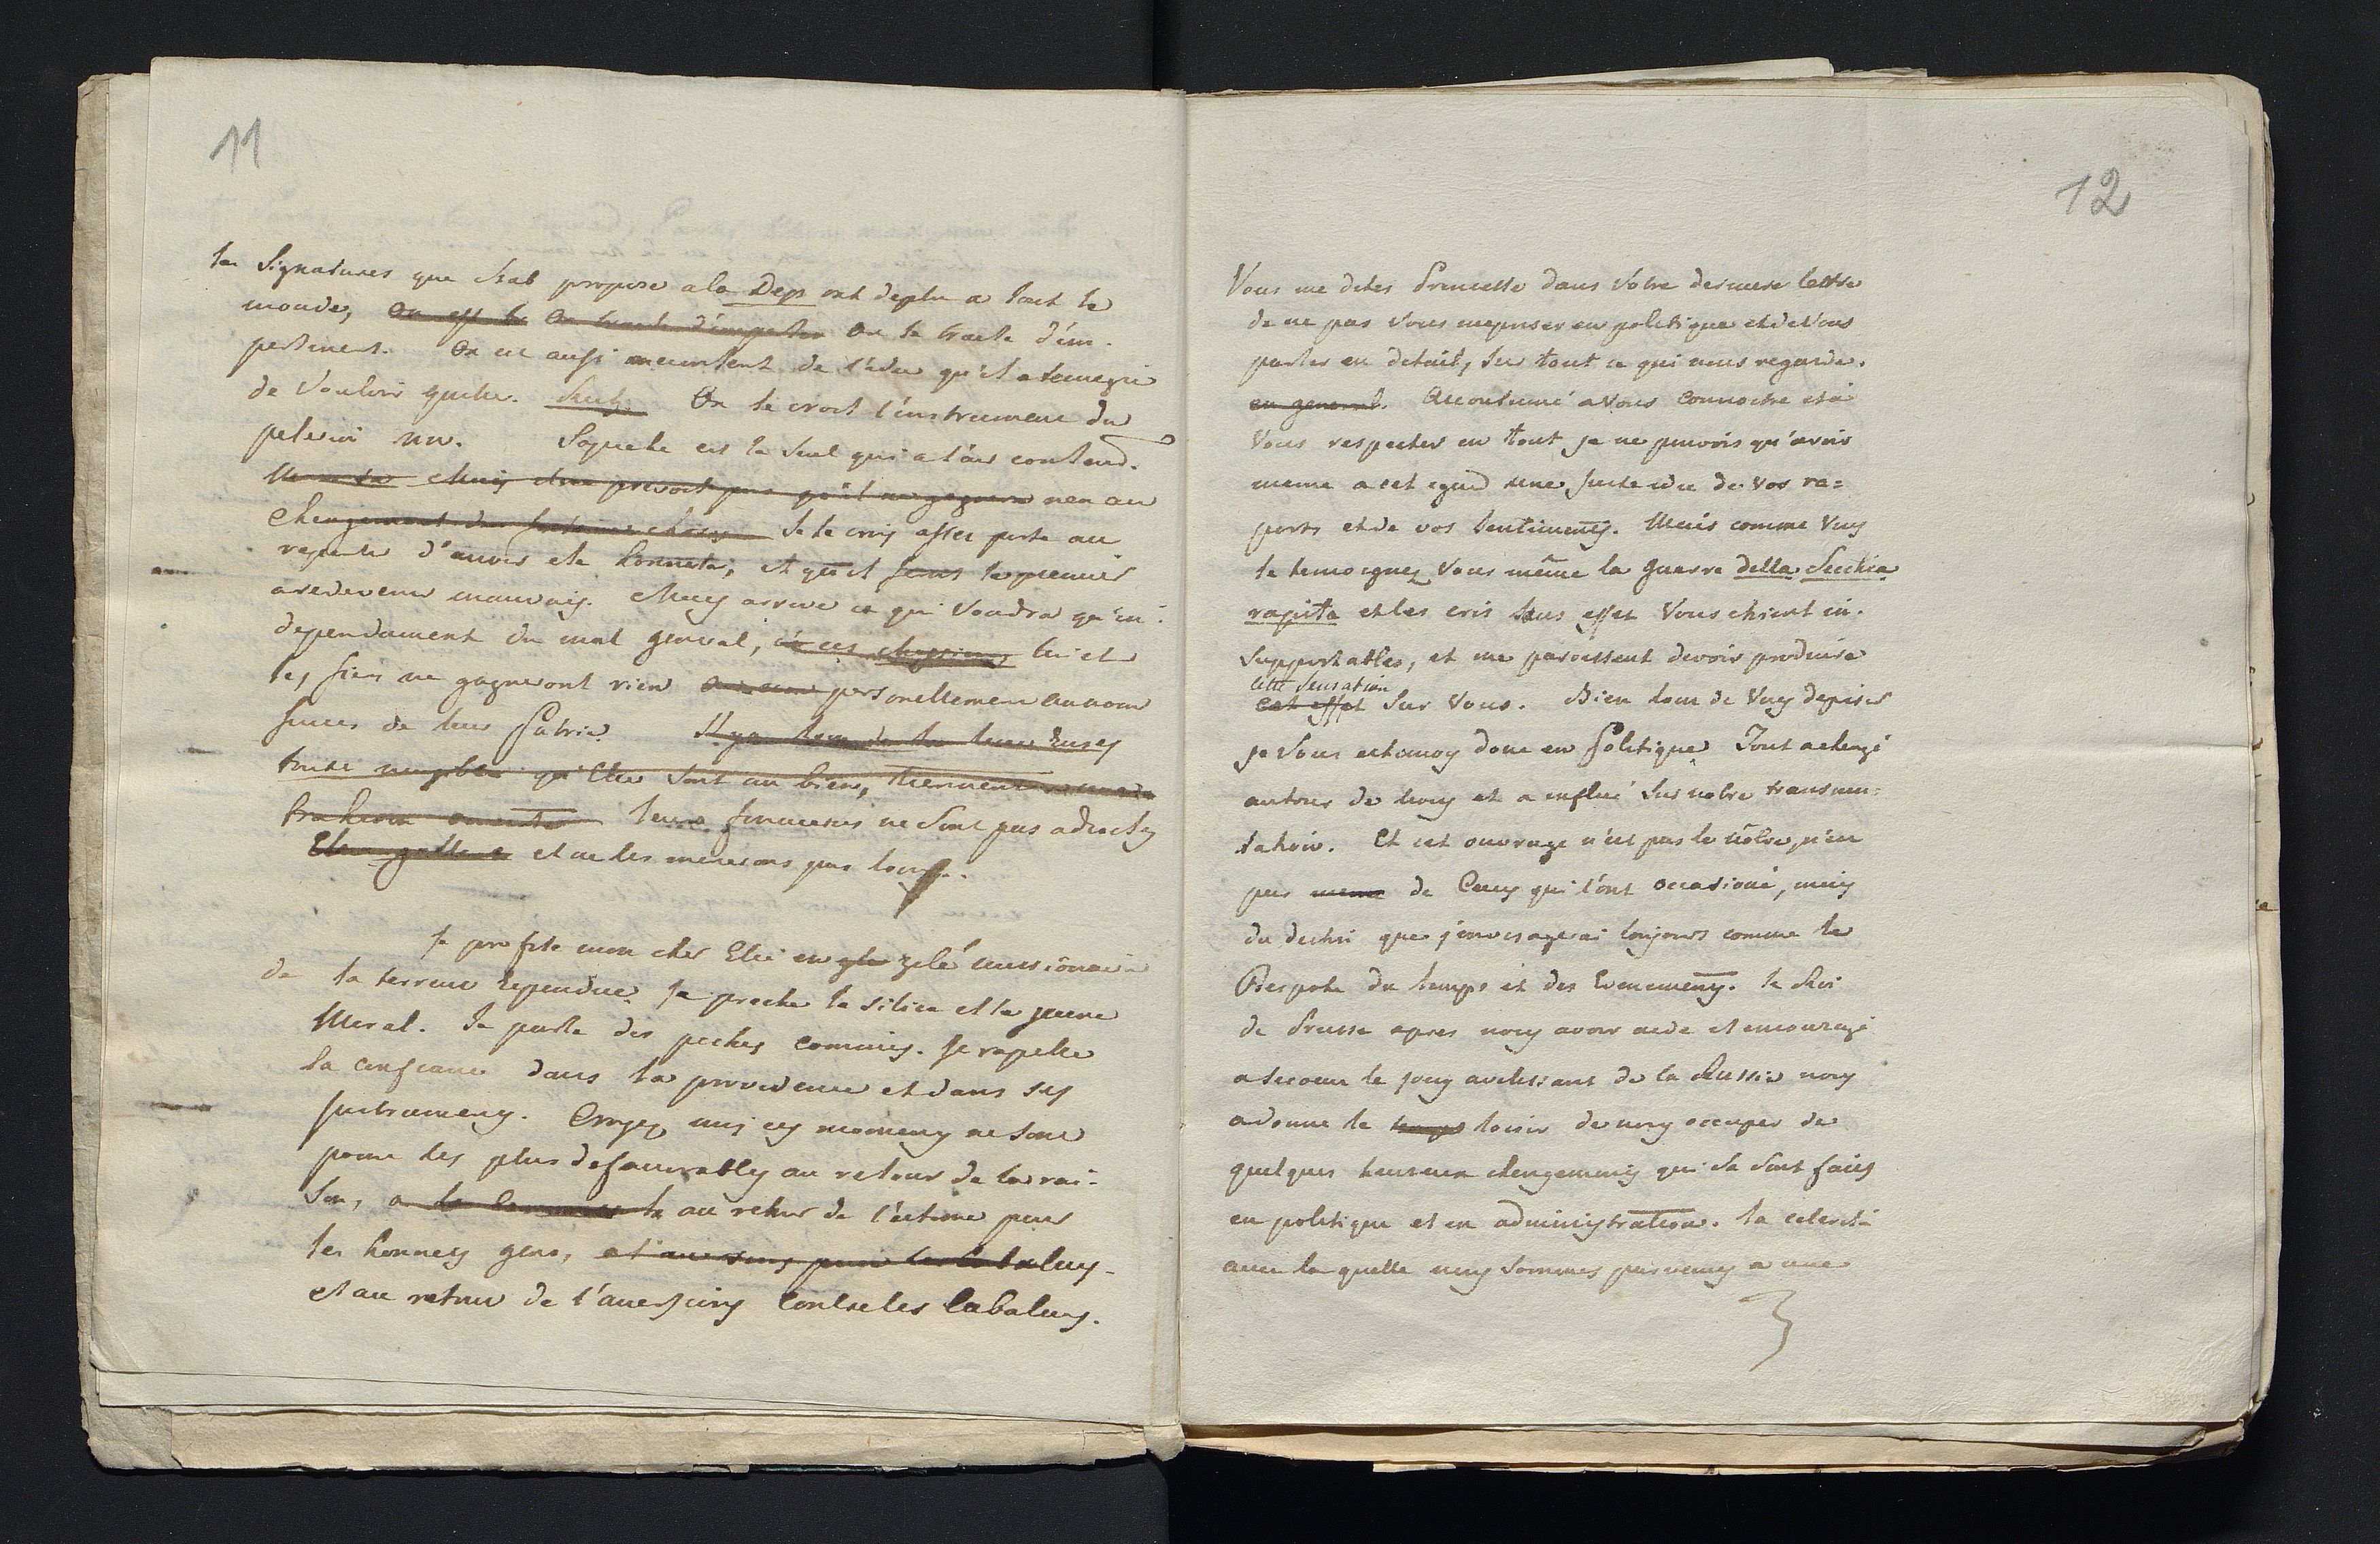 11
les Signatures que Stab propose a la Dep ont deplu a tout le
monde, on le traite d'im-
pertinent. On est aussi mecontent de l'idee qu'il a temoigné
de Vouloir quiter. On le croit l'instrument du
pelerin nw. Sapieha est le Seul qui a l'air contend.
Mais
changement Je le crois assez porté au
repentir d'avoir ete honnete, et qu'il sera le premier
a redevenir mauvais. Mais arrive ce qui Voudra qu'in-
dependament du mal general, lui et
les siens ne gagneront rien personellement
de leur Patrie.
qu'Elles sont au bien,
leurs finesses ne sont pas adroites
et ne les menerons pas loin.
Je profite mon cher Elie en zelé missionaire
de la terreur rependue. Je preche le silice et le jeune
Moral. Je parle des pechés commis. Je rappelle
la confiance dans la providence et dans ses
instrumens. Croyez moi ces momens ne sont
point les plus defavorables au retour de la rai-
son, au retour de l'estime pour
les honnetes gens,
et au retour de l'aversions contre les cabaleurs.
12
Vous me dites Princesse dans Votre derniere lettre
de ne pas vous mepriser en politique et de Vous
parler en detail, sur tout ce qui nous regarde.
en general. Accoutumé a Vous connoitre et à
Vous respecter en tout je ne pouvois qu'avoir
meme a cet egard une juste idee de Vos ra=
ports et de vos sentimens. Mais comme Vous
le temoignez Vous même la guerre della Secchia
rapita et les cris sans effet Vous etoient in-
supportables, et me paroissent devoir produire
cette sensation
cet effet sur Vous. Bien loin de Vous depriser
je Vous estimois donc en Politique. Tout a changé
autour de nous et a influé sur notre transmu=
tation. Et cet ouvrage n'est pas le nôtre, n'est
pas meme de Ceux qui l'ont occasioné, mais
du destin que j'envisagerai toujours comme le
Despote du temps et des Evenemens. le Roi
de Prusse apres nous avoir aidé et encouragé
a secouer le joug avilissant de la Russie nous
a donné le temps loisir de nous occuper de
quelques heureux changemens qui se sont faits
en politique et en administration. la celerité
avec la quelle nous sommes parvenus a une